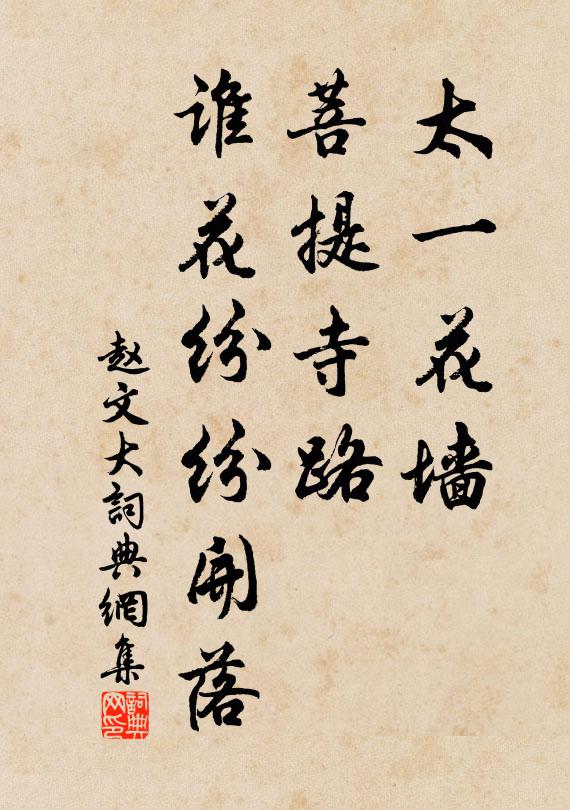 太一花墙
菩提寺路
谁花纷纷開落
赵文大詞典網集
詞典
网印